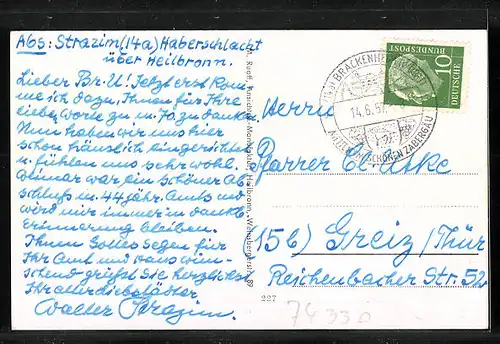 Abs: Strazim (14a) Haberschlacht
über Heilbronn.
Lieber Br. U! Jetzt erst kom
me ich dazu, Ihnen für Ihre
liebe Worte zu m. 70. zu danken.
Nun haben wir uns hier
schon häuslich eingerichtet
u. fühlen uns sehr wohl.
war ein schöner Ab
schluß m. 44 jähr. Amts und
wird mir immer in dankb.
Erinnerung bleiben.
Ihnen Gottes Segen für
Ihr Amt und Haus wün-
schend grüßt Sie herzlichst
Ihr
Walter Strazim.
W. Ruoff, Ansichts- u. Heilbronn, Weinsberger
227
BRACKENHEIM
14.6.57
SCHÖNEN ZABERGÄU
10
DEUTSCHE
BUNDESPOST
Herrn
Pfarrer
(15b) Greiz/Thür
Reichenbacher Str. 52